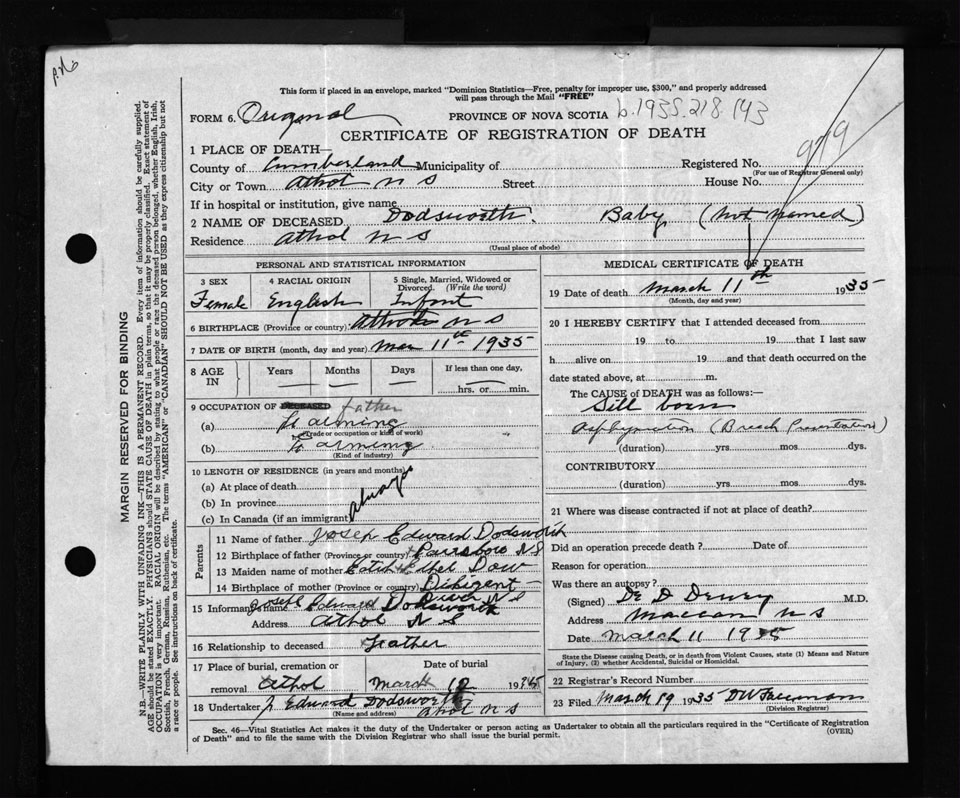 This form if placed in an envelope, marked "Dominion Statistics—Free, penalty for improper use, $300," and properly addressed
will pass through the Mail "FREE"
FORM 6. Original PROVINCE OF NOVA SCOTIA b.1935.218.143
CERTIFICATE OF REGISTRATION OF DEATH
979
1 PLACE OF DEATH—
County of Cumberland Municipality of Registered No.
(For use of Registrar General only)
City or Town Athol N S Street House No.
If in hospital or institution, give name
2 NAME OF DECEASED Dodsworth. Baby (not named)
Residence Athol N S
(Usual place of abode)
PERSONAL AND STATISTICAL INFORMATION
3 SEX 4 RACIAL ORIGIN 5 Single, Married, Widowed or Divorced. (Write the word)
Female English Infant
6 BIRTHPLACE (Province or country) N S
7 DATE OF BIRTH (month, day and year) Mar 11th 1935
8 AGE IN Years Months Days If less than one day,
hrs. or min.
9 OCCUPATION OF DECEASED father
(a) Farming
(Trade or occupation or kind of work)
(b) Farming
(Kind of industry)
10 LENGTH OF RESIDENCE (in years and months)
(a) At place of death
(b) In province always
(c) In Canada (if an immigrant)
Parents
11 Name of father Joseph Edward Dodsworth
12 Birthplace of father (Province or country) Parrsboro N S
13 Maiden name of mother Ethel Dow
14 Birthplace of mother (Province or country)
River N S
15 Informant name Joseph Edward Dodsworth
Address Athol N S
16 Relationship to deceased Feather
17 Place of burial, cremation or removal Athol Date of burial March 12 1935
18 Undertaker J Edward Dodsworth
(Name and address) Athol N S
MEDICAL CERTIFICATE OF DEATH
19 Date of death March 11th 1935
(Month, day and year)
20 I HEREBY CERTIFY that I attended deceased from
19 to 19 that I last saw
h alive on 19 and that death occurred on the
date stated above, at m.
The CAUSE of DEATH was as follows:—
Still born
(Breech Presentation)
(duration) yrs mos dys.
CONTRIBUTORY
(duration) yrs mos dys.
21 Where was disease contracted if not at place of death?
Did an operation precede death? Date of
Reason for operation
Was there an autopsy?
(Signed) Dr D Dewey M.D.
Address Maccan N S
Date March 11 1935
State the Disease causing Death, or in death from Violent Causes, state (1) Means and Nature
of Injury, (2) whether Accidental, Suicidal or Homicidal.
22 Registrar's Record Number
23 Filed March 19 1935
(Division Registrar)
Sec. 46—Vital Statistics Act makes it the duty of the Undertaker or person acting as Undertaker to obtain all the particulars required in the "Certificate of Registration
of Death" and to file the same with the Division Registrar who shall issue the burial permit.
(OVER)
MARGIN RESERVED FOR BINDING
N.B.—WRITE PLAINLY WITH UNFADING INK—THIS IS A PERMANENT RECORD. Every item of information should be carefully supplied.
AGE should be stated EXACTLY. PHYSICIANS should STATE CAUSE OF DEATH in plain terms, so that it may be properly classified. Exact statement of
OCCUPATION is very important. RACIAL ORIGIN will be described by stating to what people or race the deceased person belonged, whether English, Irish,
Scottish, French, German, Russian, Ruthenian, etc. The terms "AMERICAN" or "CANADIAN" SHOULD NOT BE USED as they express citizenship but not
a race or people. See instructions on back of certificate.